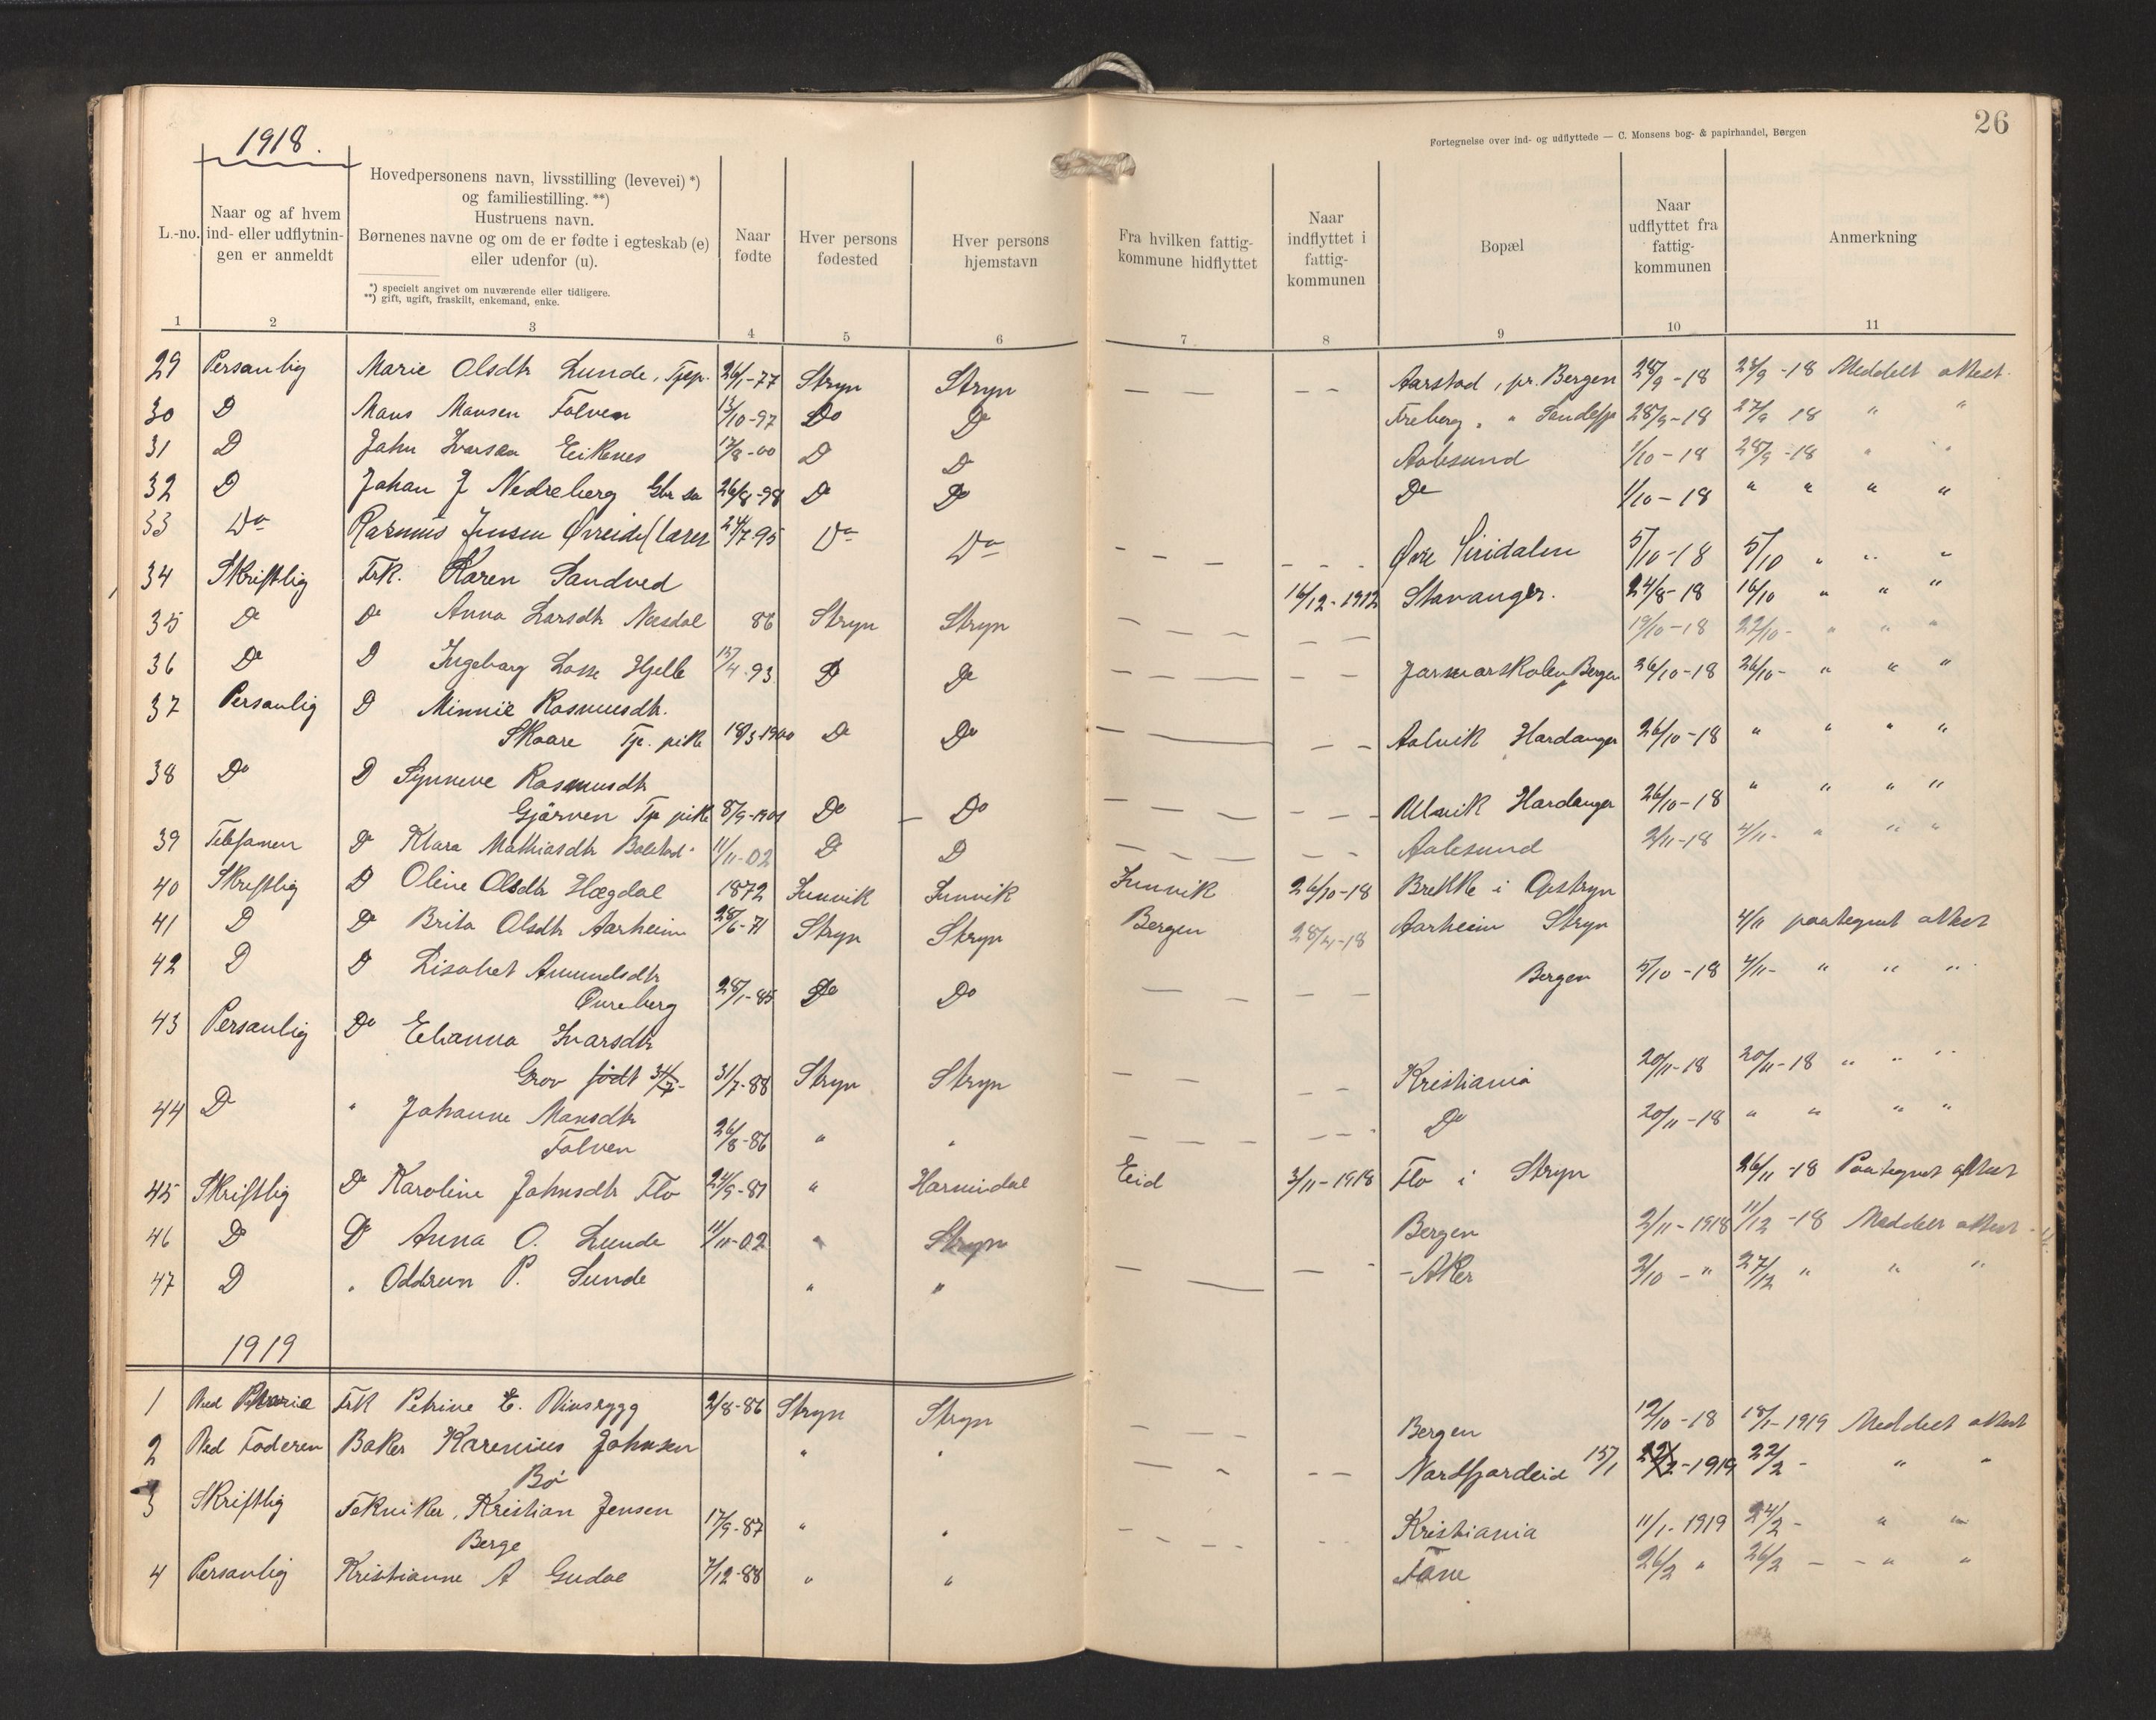 1918.
Fortegnelse over ind- og udflyttede — C. Monsens bog- & papirhandel, Bergen
26
L.-no.
Naar og af hvem ind- eller udflytningen er anmeldt
Hovedpersonens navn, livsstilling (levevei) *)
og familiestilling. **)
Hustruens navn.
Børnenes navne og om de er fødte i egteskab (e)
eller udenfor (u).
*) specielt angivet om nuværende eller tidligere.
**) gift, ugift, fraskilt, enkemand, enke.
Naar fødte
Hver persons fødested
Hver persons hjemstavn
Fra hvilken fattigkommune hidflyttet
Naar indflyttet i fattigkommunen
Bopæl
Naar udflyttet fra fattigkommunen
Anmerkning
1 2 3 4 5 6 7 8 9 10 11
29 Personlig Marie Olsdtr Lunde, Tjep. 26/1-77 Stryn Stryn — — — — Aarstad, pr. Bergen 28/9-18 28/9-18 Meddelt attest.
30 D Mons Monsen Tolven 13/10-97 Do Do Freberg, " Sandefj 28/9-18 27/9 18 " "
31 D John Ivarsen Eikenes 12/8-00 D D Aalesund 1/10-18 28/9-18 " "
32 D Johan J Nedreberg Gbr sø 26/8-98 Do Do Do 1/10-18 " " " "
33 Do Rasmus Jensen Øvreide (lærer 24/7-95 Do Do — — — — — — Øvre Siridalen 5/10-18 5/10 " " "
34 Skriftlig Frk. Karen Sandved 16/12-1912 Stavanger. 24/8-18 16/10 " " "
35 Do Do Anna Larsdtr Næsdal 86 Stryn Stryn — — — — — 19/10-18 22/10- " " "
36 Do D Ingeborg Lasse Hjelle 15/4-93 D Do — — — — — Bergen 26/10-18 26/10- " " "
37 Personlig D Minnie Rasmusdtr.
Skaare Tje. pike 18/3-1900 Do Do — — — — Aalvik Hardanger 26/10-18 " " " "
38 Do D Synneve Rasmusdtr
Gjørven Tje pike 8/9-1901 Do — Do — — — — — — Ulvik Hardanger 26/10-18 " " " "
39 Telefonen Do Klara Mathiasdtr Bolstad 11/11-02 D D — — — — — — Aalesund 2/11-18 4/11- " " "
40 Skriftlig D Oline Olsdtr Hægdal 1872 Innvik Innvik Innvik 26/10-18 Brekke i Opstryn
41 D Do Brita Olsdtr Aarheim 28/6-71 Stryn Stryn Bergen 28/4-18 Aarheim Stryn 4/11 paategnet attest
42 D D Lisabet Amundsdtr
Øvreberg 28/1-85 Do Do — — — — Bergen 5/10-18 4/11- " " "
43 Personlig Do Elianna Ivarsdtr
Grov født 31/7- 31/7-88 Stryn Stryn — — — — Kristiania 20/11-18 20/11-18 " " "
44 D " Johanne Monsdtr
Tolven 26/8-86 " " — — — — — — Do 20/11-18 " " " "
45 Skriftlig Do Karoline Johnsdtr Flo 24/9-81 " Hornindal Eid 3/11-1918 Flo i Stryn 26/11-18 Paategnet attest
46 D D Anna O. Lunde 11/11-02 " Stryn Bergen 2/11-1918 11/12-18 Meddelt attest
47 D " Oddrun P. Sunde " " — — — — - Aker 3/10-" 27/12 " " "
1919
1 Ved Frk Petrine E. Vinsrygg 2/8-86 Stryn Stryn — — — Bergen 19/10-18 18/1-1919 Meddelt attest
2 Ved Faderen Baker Karenius Johnsen
Bø " " — — — — Nordfjordeid 15/1 22/2-1919 22/2- " "
3 Skriftlig Tekniker, Kristian Jensen
Berge 17/9-87 " " — — — — — Kristiania 11/1-1919 24/2- " "
4 Personlig Kristianne A Gudal 7/12-88 " " Fane 26/2 " 26/2 — - " "